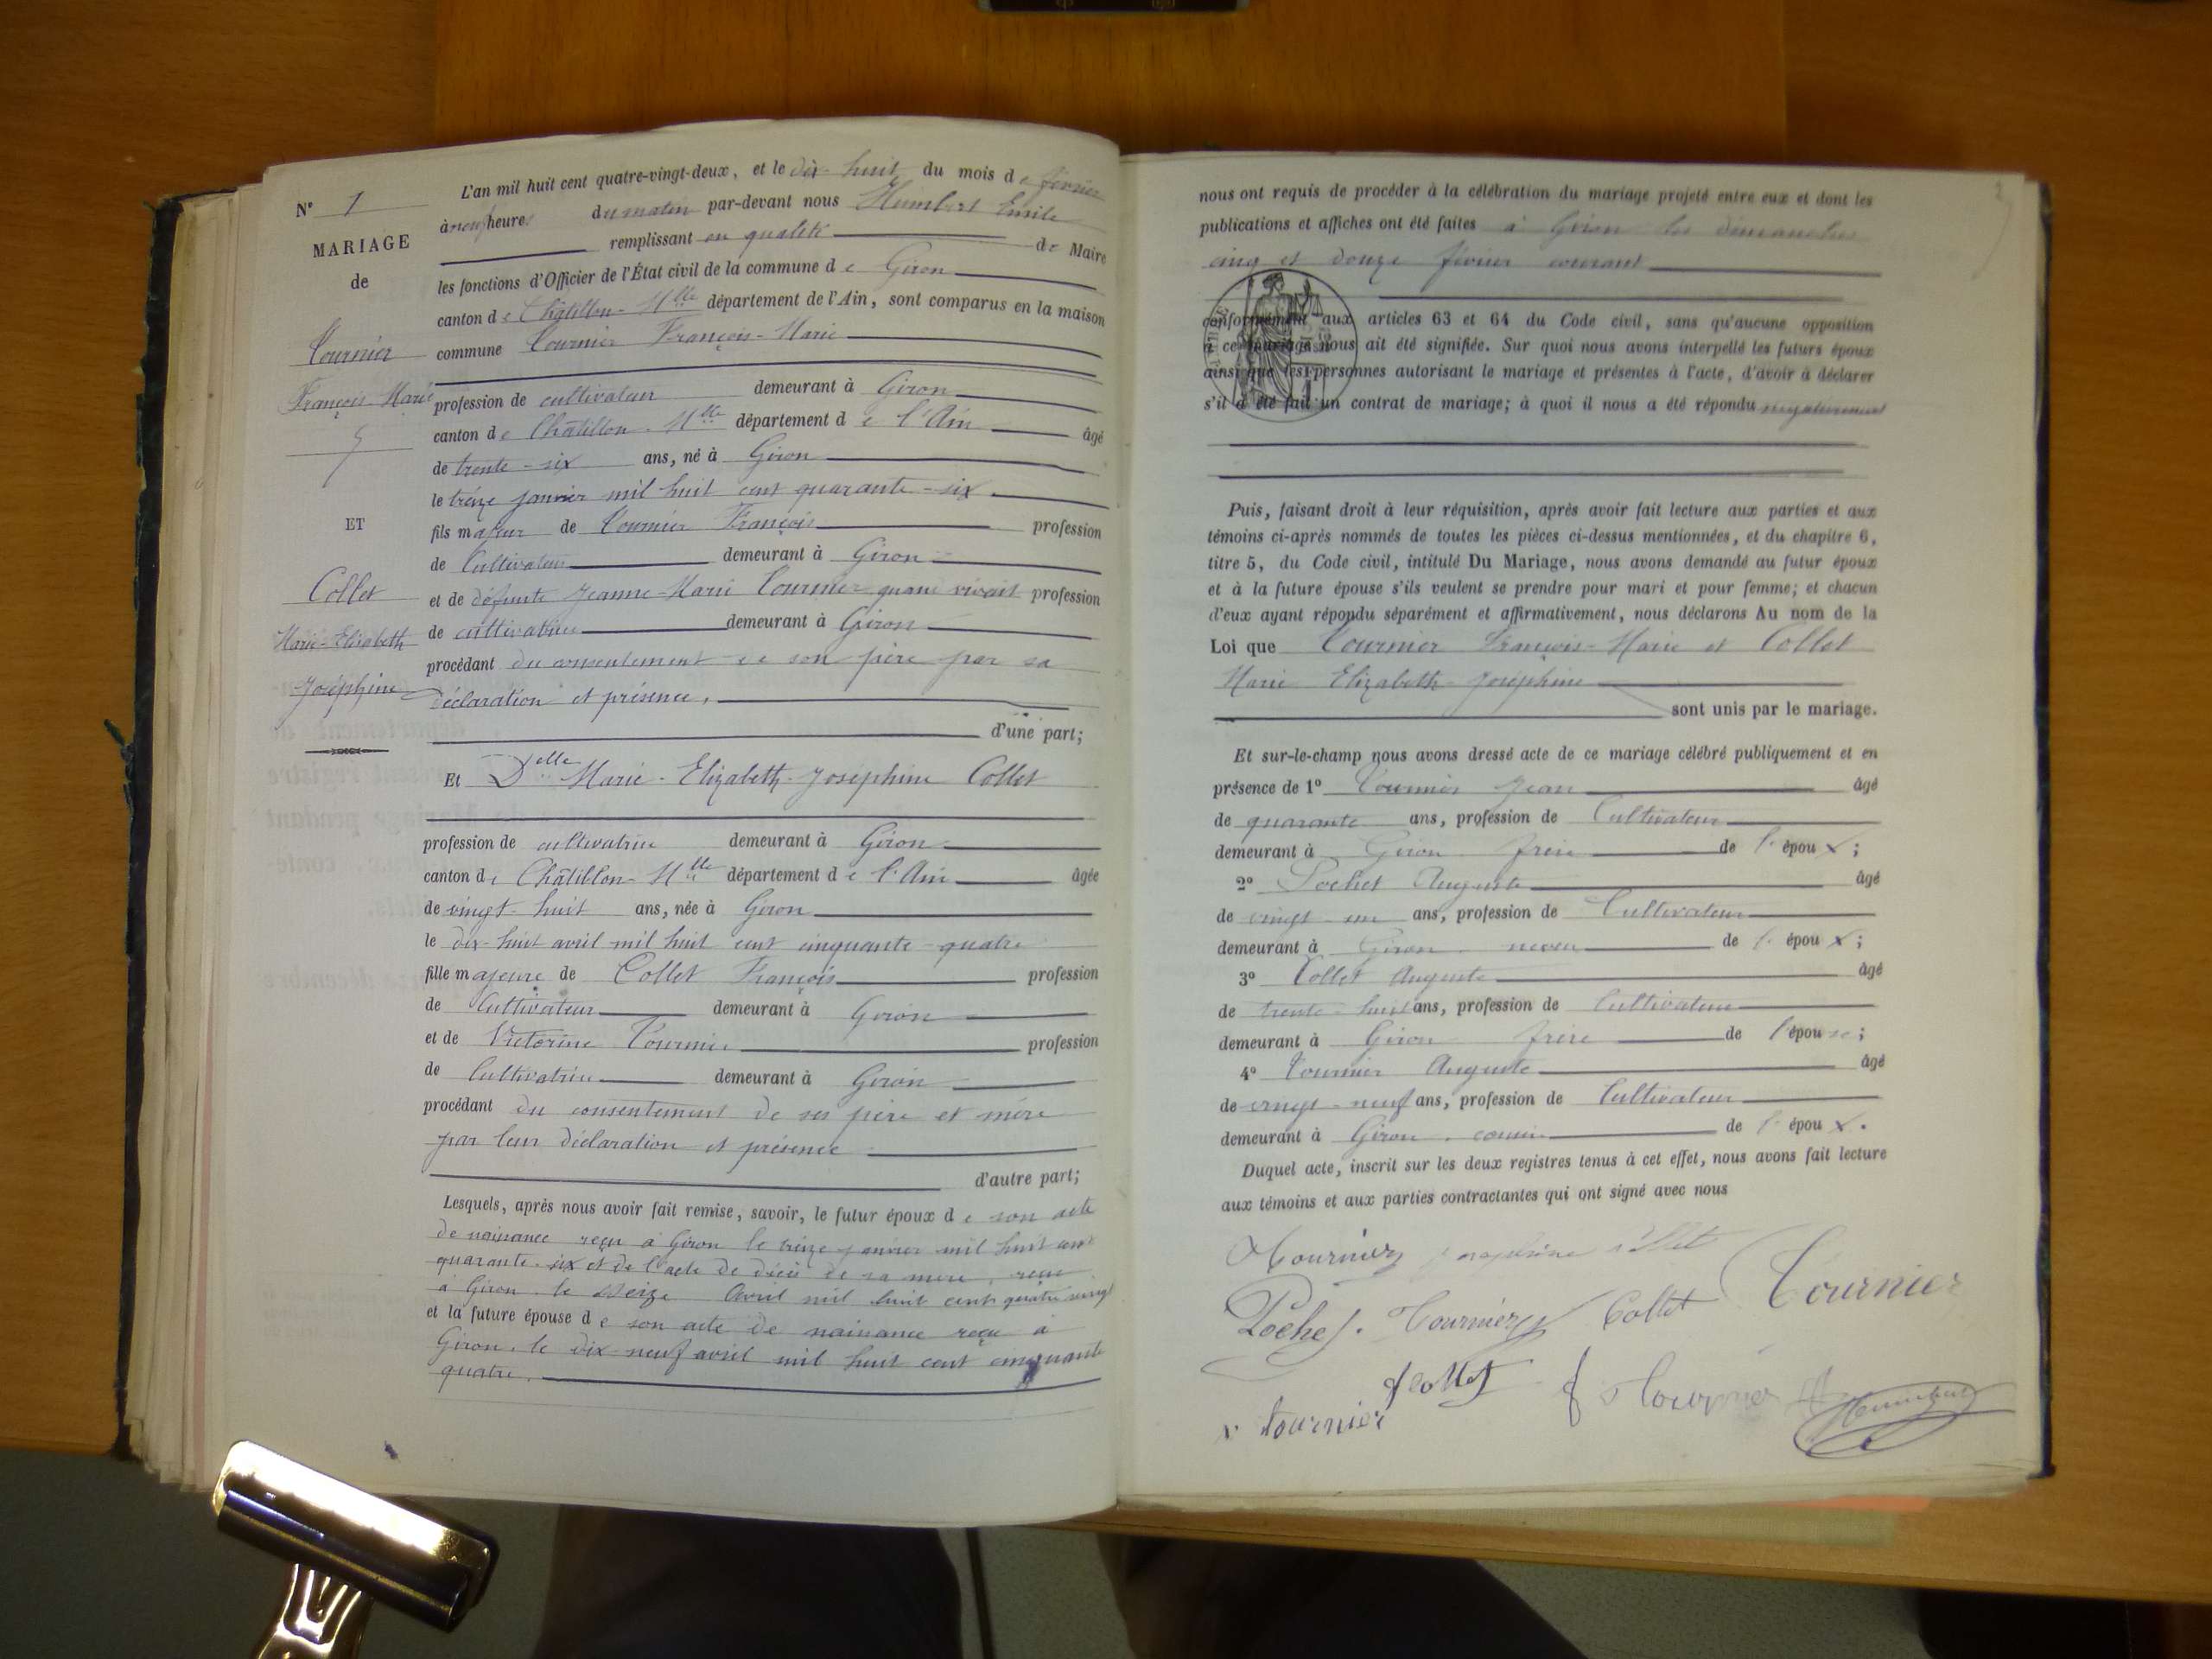 N° 1
MARIAGE
de
Tournier
François-Marie
ET
Collet
Marie-Elisabeth
Joséphine
L'an mil huit cent quatre-vingt-deux, et le dix-huit du mois de février
à neuf heures du matin par-devant nous Humbert Emile
remplissant en qualité de Maire
les fonctions d'Officier de l'État civil de la commune de Giron
canton de Châtillon-Mlle département de l'Ain, sont comparus en la maison
commune Tournier François-Marie
profession de cultivateur demeurant à Giron
canton de Châtillon-Mlle département de l'Ain âgé
de trente-six ans, né à Giron
le treize janvier mil huit cent quarante-six.
fils majeur de Tournier François profession
de Cultivateur demeurant à Giron
et de défunte Jeanne-Marie Tournier quand vivait profession
de cultivatrice demeurant à Giron
procédant du consentement de son père par sa
déclaration et présence,
d'une part;
Et Delle Marie-Elizabeth-Joséphine Collet
profession de cultivatrice demeurant à Giron
canton de Châtillon-Mlle département de l'Ain âgée
de vingt-huit ans, née à Giron
le dix-huit avril mil huit cent cinquante-quatre
fille majeure de Collet François profession
de Cultivateur demeurant à Giron
et de Victorine Tournier profession
de Cultivatrice demeurant à Giron
procédant du consentement de ses père et mère
par leur déclaration et présence
d'autre part;
Lesquels, après nous avoir fait remise, savoir, le futur époux de son acte
de naissance reçu à Giron le treize janvier mil huit cent
quarante-six et de l'acte de décès de sa mère, reçu
à Giron le seize Avril mil huit cent quatre vingt
et la future épouse de son acte de naissance reçu à
Giron, le dix-neuf avril mil huit cent cinquante
quatre.
nous ont requis de procéder à la célébration du mariage projeté entre eux et dont les
publications et affiches ont été faites à Giron les dimanches
cinq et douze février courant
conformément aux articles 63 et 64 du Code civil, sans qu'aucune opposition
à ce mariage nous ait été signifiée. Sur quoi nous avons interpellé les futurs époux
ainsi que les personnes autorisant le mariage et présentes à l'acte, d'avoir à déclarer
s'il a été fait un contrat de mariage; à quoi il nous a été répondu négativement
Puis, faisant droit à leur réquisition, après avoir fait lecture aux parties et aux
témoins ci-après nommés de toutes les pièces ci-dessus mentionnées, et du chapitre 6,
titre 5, du Code civil, intitulé Du Mariage, nous avons demandé au futur époux
et à la future épouse s'ils veulent se prendre pour mari et pour femme; et chacun
d'eux ayant répondu séparément et affirmativement, nous déclarons Au nom de la
Loi que Tournier François-Marie et Collet
Marie Elizabeth Joséphine
sont unis par le mariage.
Et sur-le-champ nous avons dressé acte de ce mariage célébré publiquement et en
présence de 1° Tournier Jean âgé
de quarante ans, profession de Cultivateur
demeurant à Giron frère de l'époux;
2° Pochet Auguste âgé
de vingt-un ans, profession de Cultivateur
demeurant à Giron neveu de l'époux;
3° Collet Auguste âgé
de trente-huit ans, profession de Cultivateur
demeurant à Giron frère de l'épouse;
4° Tournier Auguste âgé
de vingt-neuf ans, profession de Cultivateur
demeurant à Giron, cousin de l'époux.
Duquel acte, inscrit sur les deux registres tenus à cet effet, nous avons fait lecture
aux témoins et aux parties contractantes qui ont signé avec nous
Tournier Joséphine Collet
Pochet. Tournier Collet Tournier
f collet
v tournier f Tournier Humbert